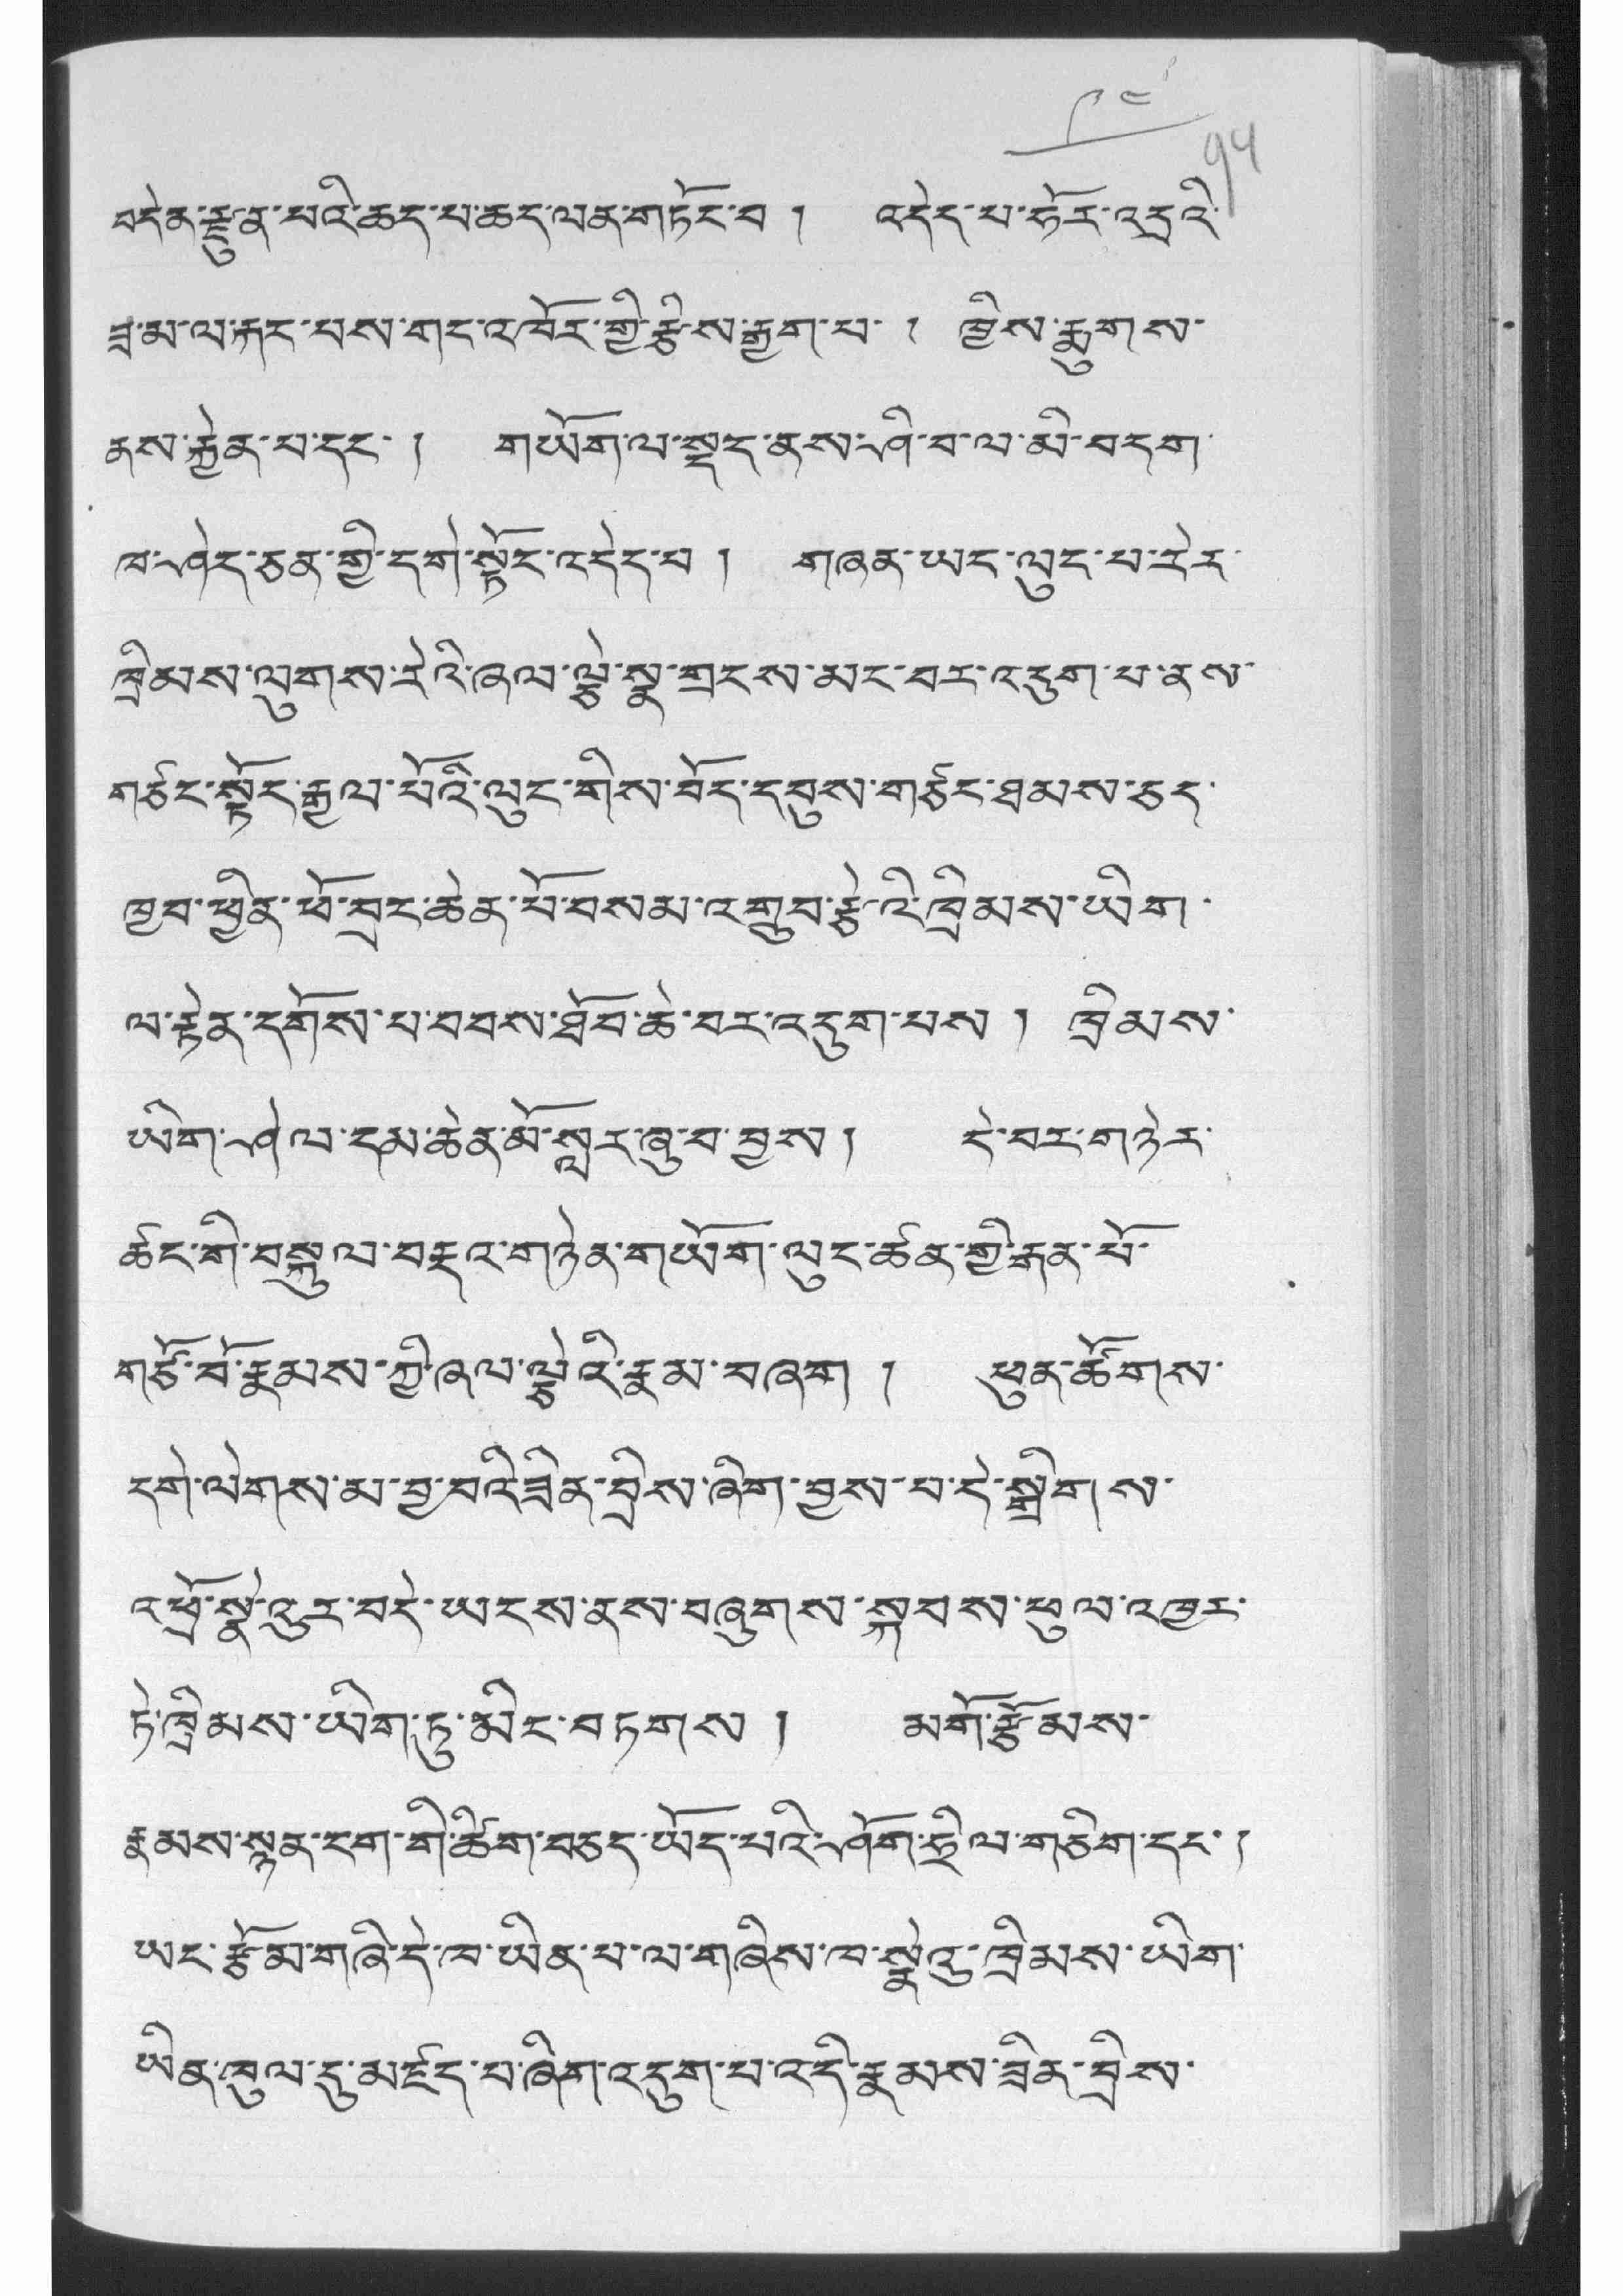 ༡༥
བདེན་རྫུན་པའི་ཆད་པ་ཆད་ལན་གཏོང་བ། འདེད་པ་ཧོར་འདྲའི་
ཟླ་མ་ལ་རྐང་པས་གང་འཁོར་གྱི་རྩིས་རྒྱག་པ་། ཁྱིས་རྨུགས་
ནས་རྐྱེན་པ་དང་། གཡོག་ལ་སྡད་ནས་ཤི་བ་ལ་མི་བདག་
ཁ་ཤེད་ཅན་གྱི་དགེ་སྟོང་འདེད་པ། གཞན་ཡང་ལུང་པ་རེར་
ཁྲིམས་ལུགས་རེའི་ཞལ་ལྕེ་སྣ་གྲངས་མང་བར་འདུག་པ་ནས་
གཙང་སྟོད་རྒྱལ་པོའི་ལུང་གིས་བོད་དབུས་གཙང་ཐམས་ཅད་
ཁྱབ་ཕྱིན་ཕོ་བྲང་ཆེན་པོ་བསམ་འགྲུབ་རྩེའི་ཁྲིམས་ཡིག་
ལ་རྟེན་དགོས་པ་བབས་ཐོབ་ཆེ་བར་འདུག་པས། ཁྲིམས་
ཡིག་ཤེལ་དམ་ཆེན་མོ་སླར་ཞུ་བ་བྱས། དེ་བར་གཉེར་
ཚང་གི་བསྐུལ་བརྡའ་གཉེན་གཡོག་ལུང་ཚན་གྱི་རྒན་པོ་
གཙོ་བོ་རྣམས་ཀྱི་ཞལ་ལྕེའི་རྣམ་བཞག། ཕུན་ཚོགས་
དགེ་ལེགས་མ་བྱ་བའི་ཟིན་བྲིས་ཞིག་བྱས་པ་དེ་སྒྲིགས་
འཕྲོ་སྣེའུར་བདེ་ཡངས་ནས་བཞུགས་སྐབས་ཕུལ་འཁྱར་
ཏེ་ཁྲིམས་ཡིག་ཏུ་མིང་བཏགས། མགོ་རྩོམས་
རྣམས་སྙན་ངག་གི་ཚིག་བཅད་ཡོད་པའི་ཤོག་དྲིལ་གཅིག་དང་།
ཡང་རྩོམ་གཞི་དེ་ཁ་ཡིན་པ་ལ་གཞིས་ཁ་སྣེའུ་ཁྲིམས་ཡིག་
ཡིན་ཁུལ་དུ་མཛད་པ་ཞིག་འདུག་པ་འདི་རྣམས་ཟིན་བྲིས་